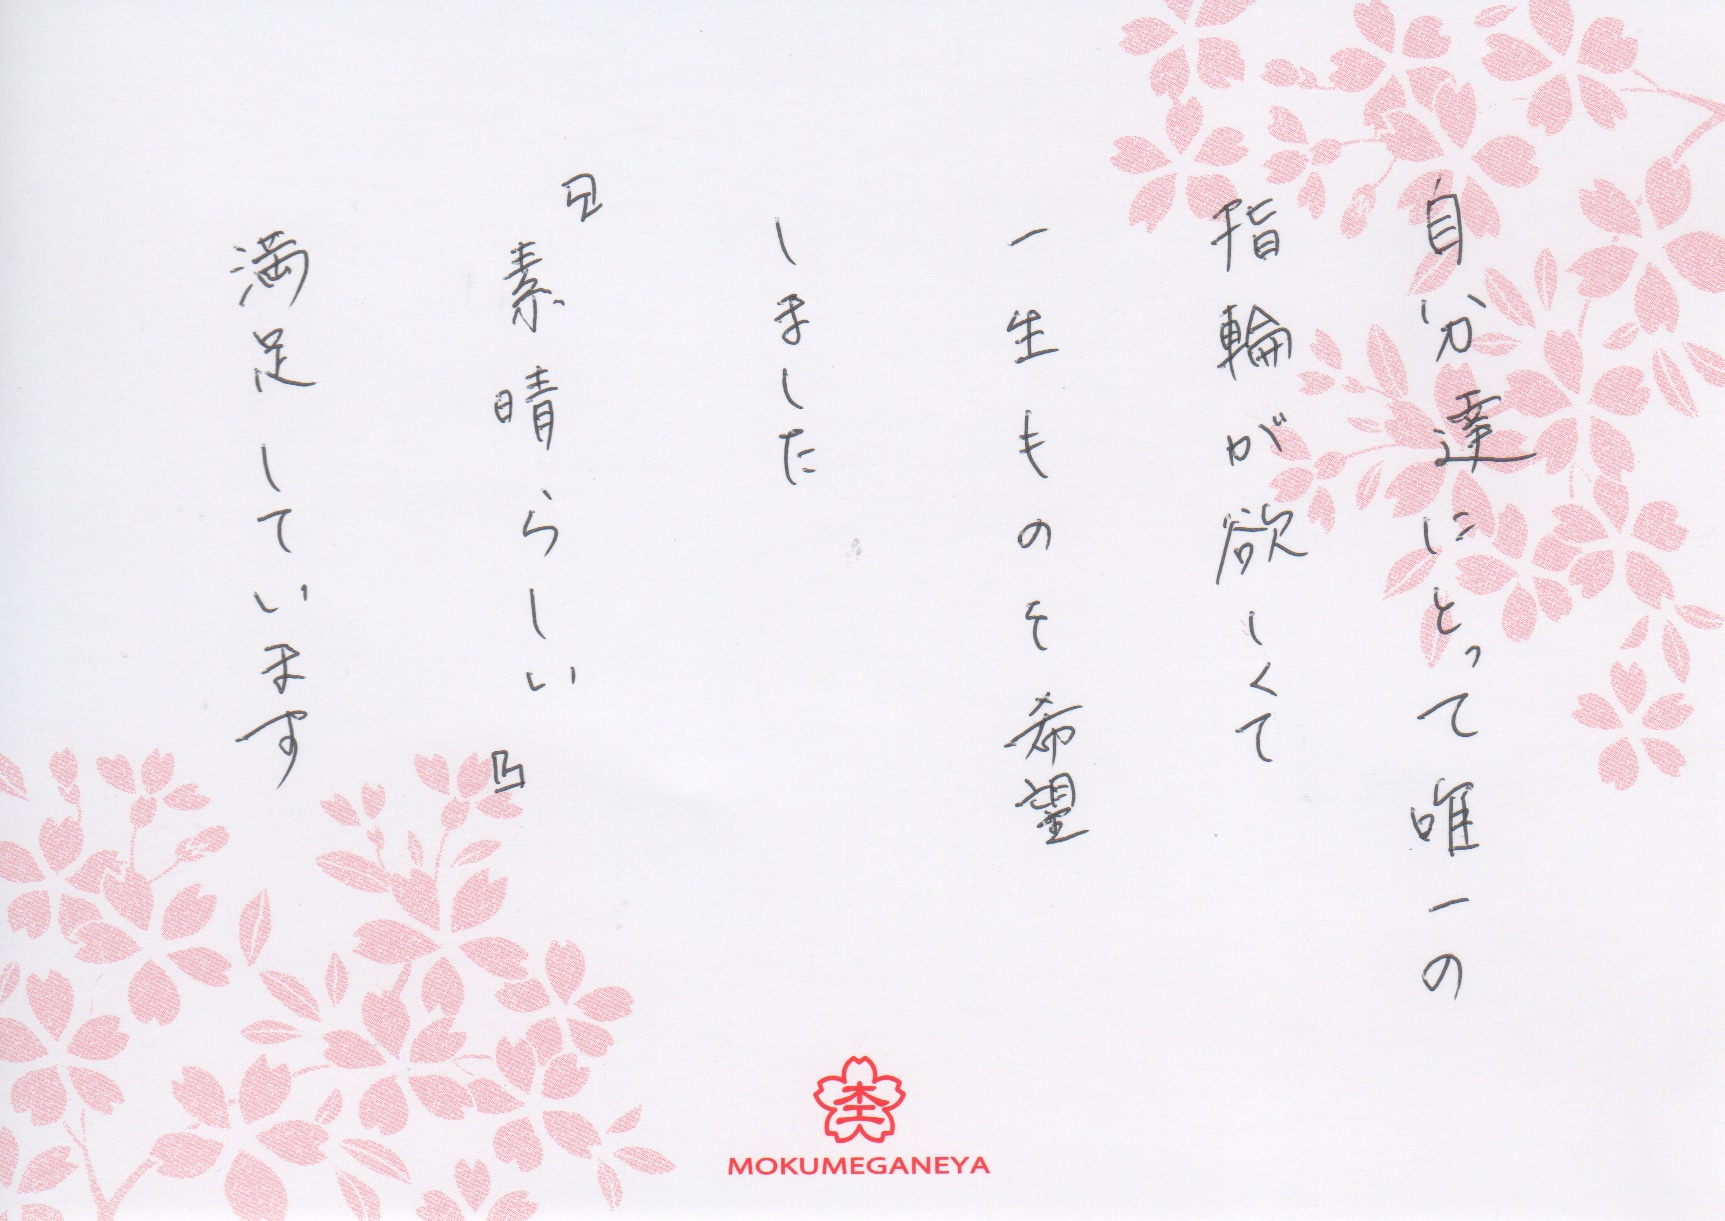 自分達にとって唯一の
指輪が欲しくて
一生ものを希望
しました
『素晴らしい』
満足しています
MOKUMEGANEYA